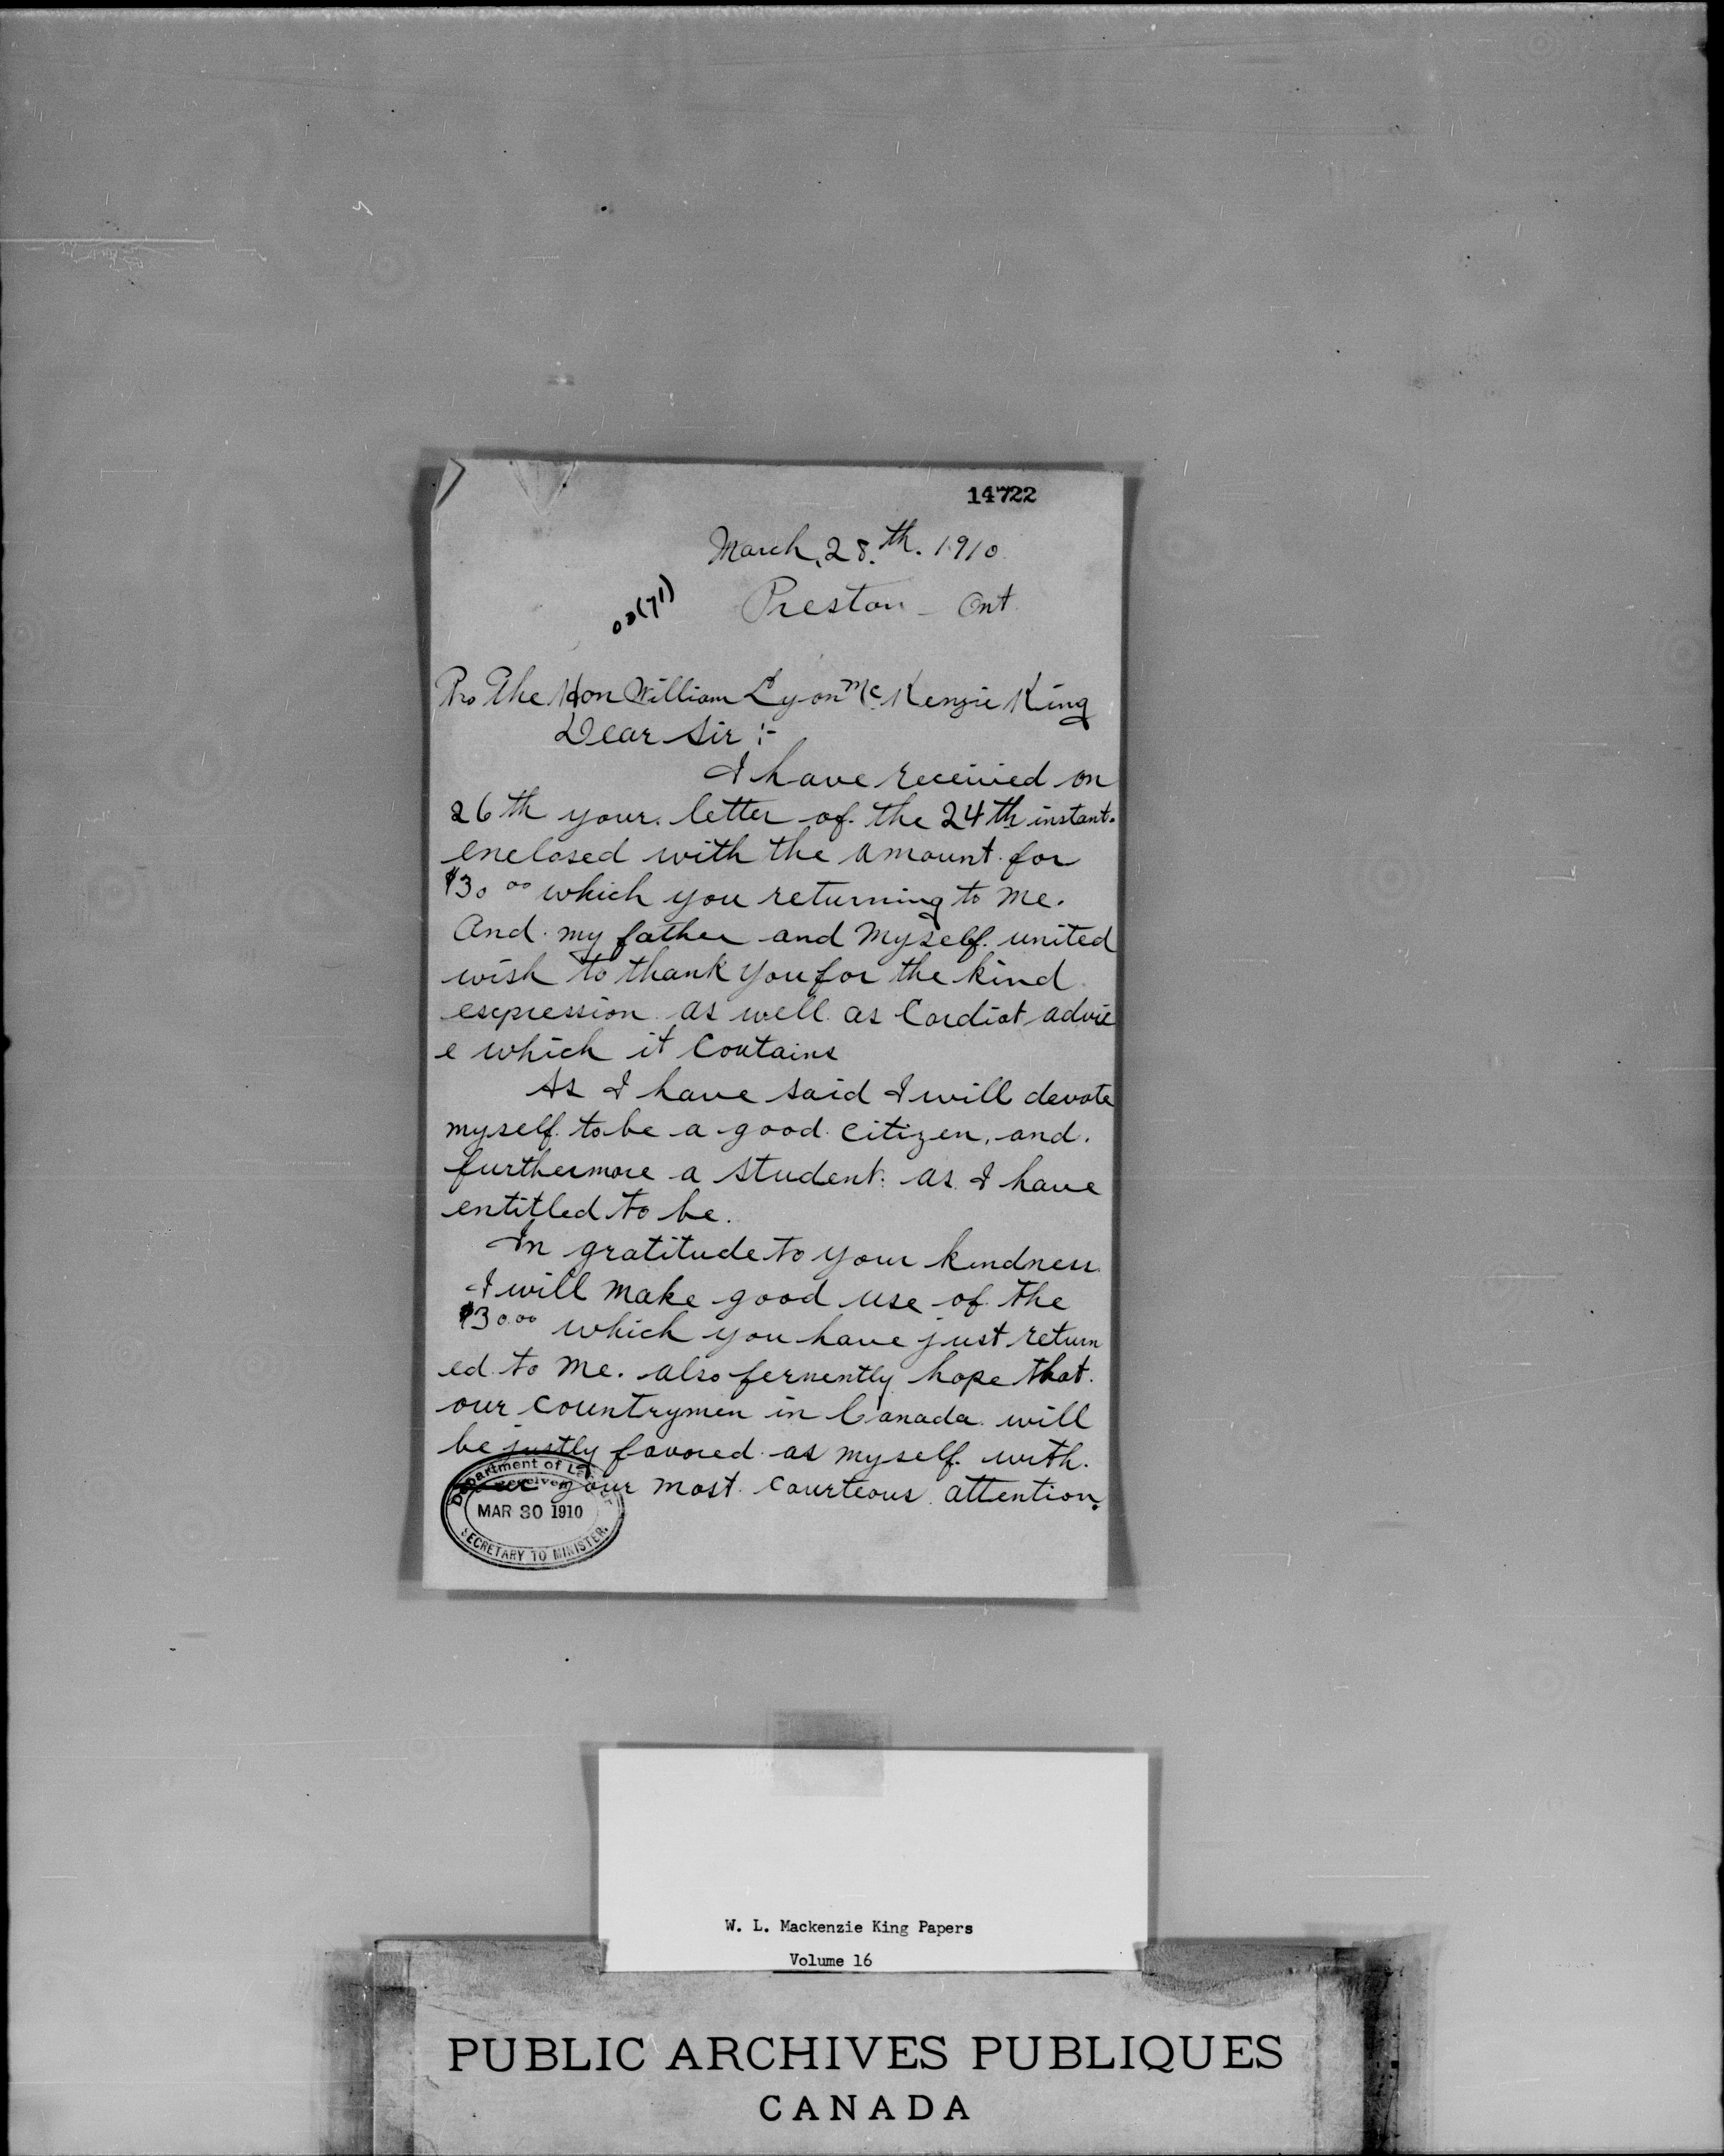 14722
March, 28.th. 1910
Preston - Ont.
To The Hon William Lyon Mc Kenzie King
Dear Sir :-
I have received on
26th your letter of the 24th instant.
enclosed with the amount for
$30 00 which you returning to me.
And my father and myself united
wish to thank you for the kind
esepression as well as Cordiat advic
e which it Contains
As I have said I will devote
myself to be a good citizen, and.
furthermore a student. as I have
entitled to be.
In gratitude to your kindness
I will make good use of the
$30.00 which you have just return
ed to me. also fervently hope that.
our countrymen in Canada will
be justly favored as myself with.
your most courteous attention.
Department of Labour
Received
MAR 30 1910
SECRETARY TO MINISTER.
W. L. Mackenzie King Papers
Volume 16
PUBLIC ARCHIVES PUBLIQUES
CANADA